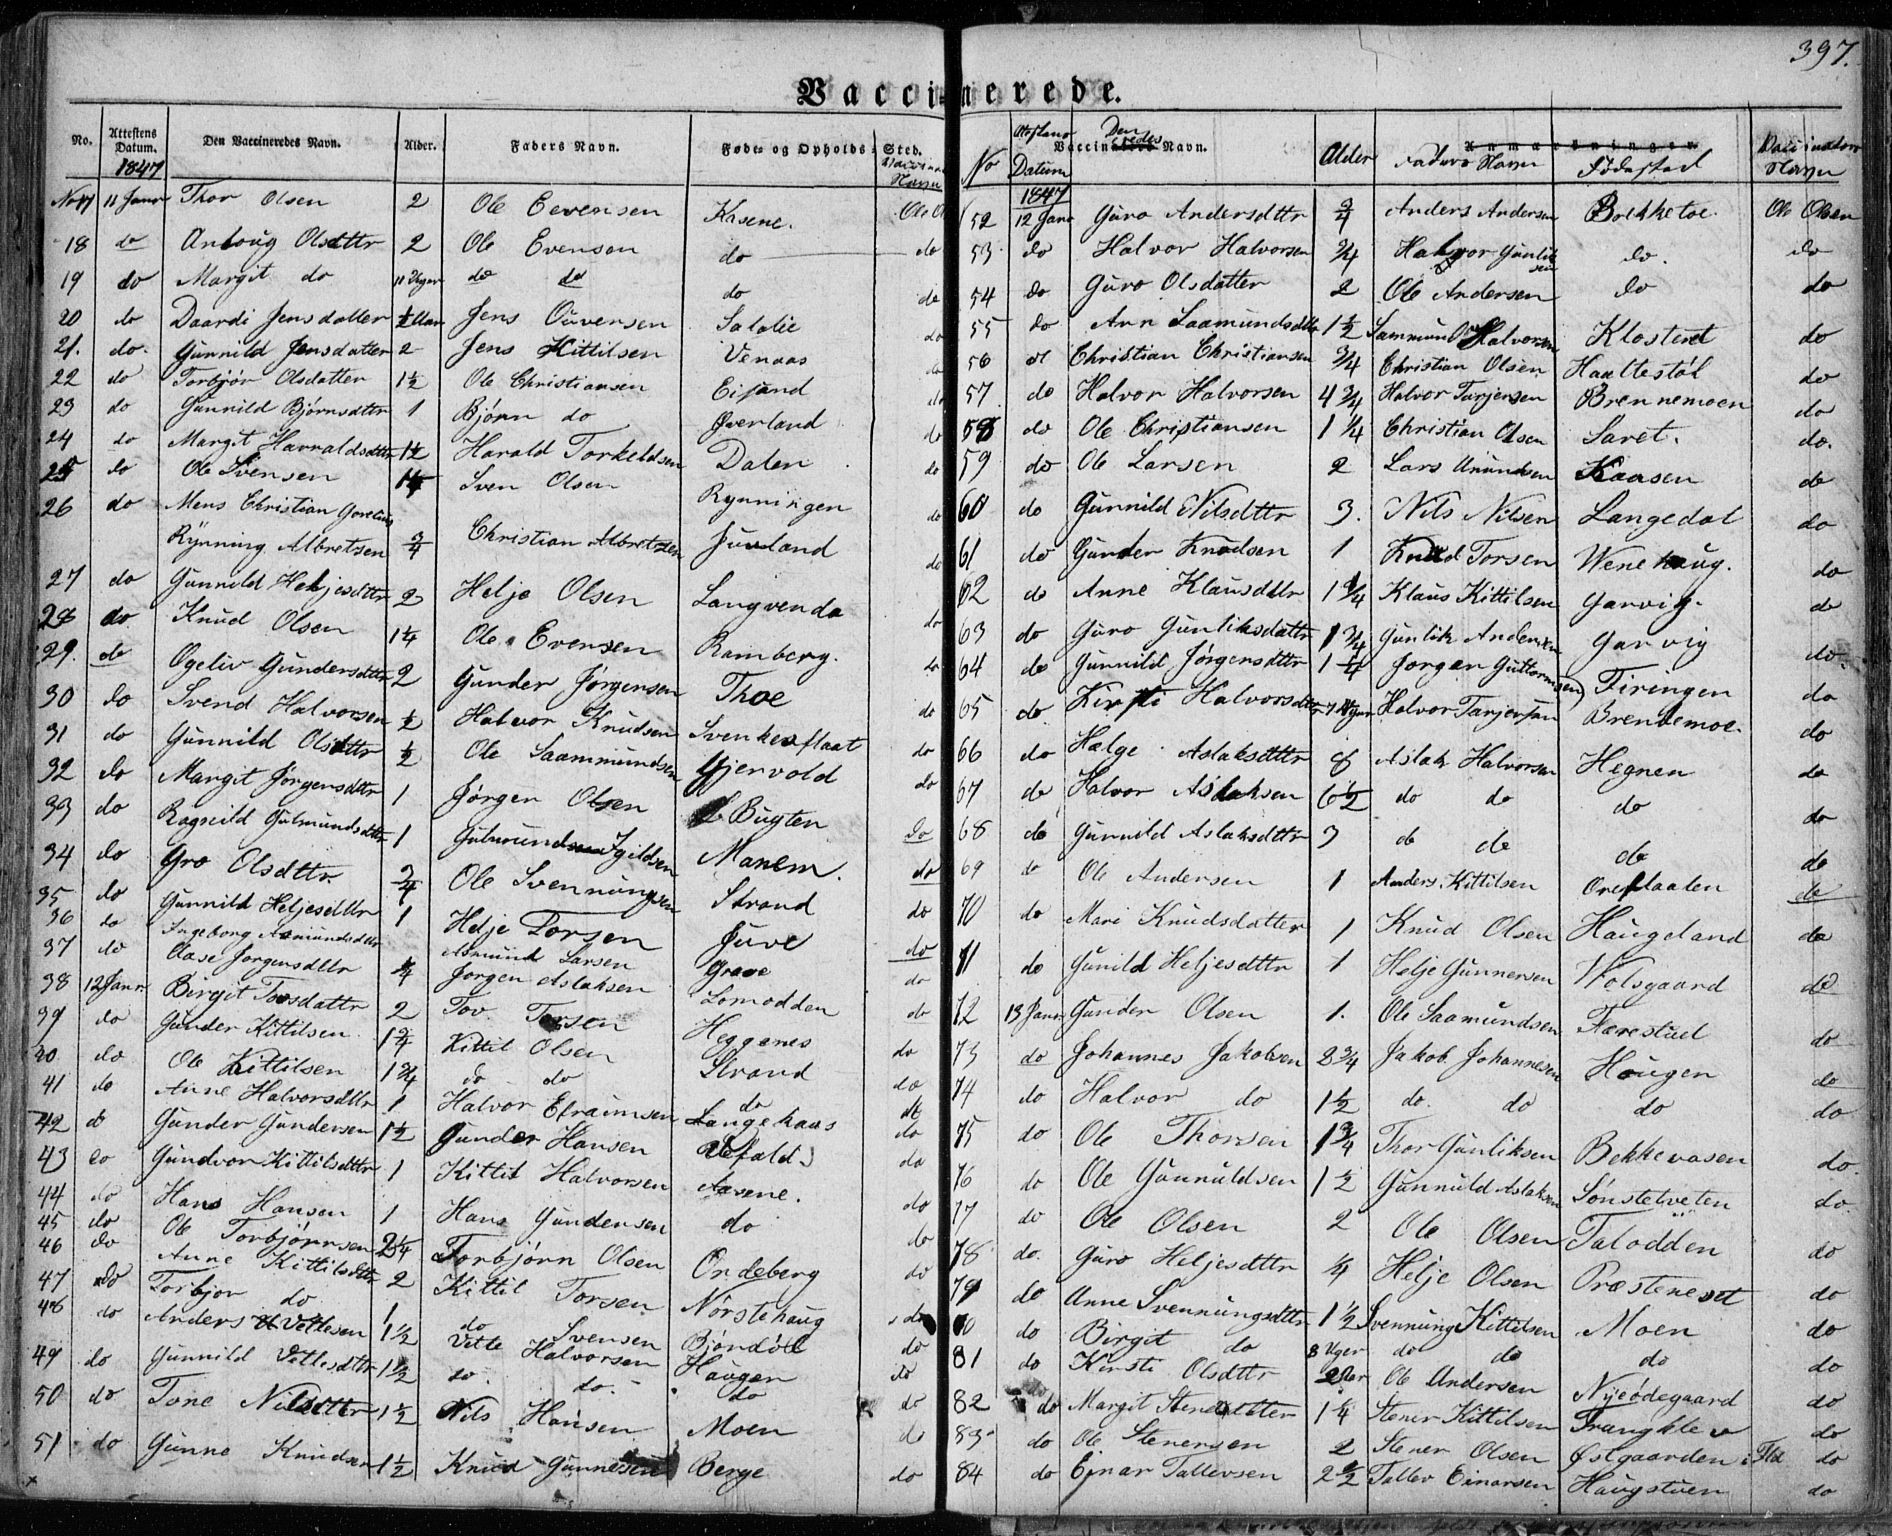 397.
Vaccinerede.
No. Attestens Datum. Den Vaccineredes Navn. Alder. Faders Navn. Føde- og Opholds-Sted. Navn
1847
No 17 11 Janr Thor Olsen 2 Ole Evensen Kasene. Ole
18 do Anboug Olsdttr 2 Ole Evensen do do
19 do Margit do 11 Uger do do do do
20 do Daardi Jensdatter ½ Aar Jens Ouvensen do
21. do. Gunnild Jensdatter 2 Jens Kittilsen Venaas do
22 do Torbjør Olsdatter 1½ Ole Christiansen do
23 do Gunnild Bjørnsdttr 1 Bjørn do Øverland do
24 do Margit Harraldsdttr 1½ Harald Torkeldsen Dalen do
25 do Ole Svensen Sven Olsen Rynningen do
26 do Mens Christian
Rynning Albretsen ¾ Christian Albretsen Juvland do
27 do Gunnild Heljesdttr 2 Helje Olsen Langvenda do
28 do Knud Olsen 1¼ Ole Evensen Ramberg. do
29. do Ogeliv Gundersdttr 2 Gunder Jørgensen Thoe do
30 do Svend Halvorsen ½ Halvor Knudsen Svenkesflaat do
31 do Gunnild Olsdttr ½ Ole Saammundsen Gjervold do
32 do Margit Jørgensdttr 1 Jørgen Olsen Bugten do
33 do Ragnild Gulmundsdttr 1 Gulmund Manem. do
34 do Gro Olsdttr. ¾ Ole Svennungsen Strand do
35 do Gunnild Heljesdttr 1 Helje Torsen Juve do
36 do Ingeborg Asmundsdttr Asmund Larsen Grave do
37 do Aase Jørgensdttr ¼ Jørgen Aslaksen Lomodden do
38 12 Janr. Birgit Torsdattr 2 Tov Torsen Heggenes do
39 do Gunder Kittilsen 1¾ Kittil Olsen Strand do
40 do Ole Kittilsen 1¾ do do do do
41 do Anne Halvorsdttr 1 Halvor Efraimsen Langekaas do
42 do Gunder Gundersen 1½ Gunder Hansen do
43 do Gundvor Kittilsdttr 1 Kittil Halvorsen Aasene. do
44 do Hans Hansen 1 Hans Gundersen do do
45 do Ole Torbjørnsen 2¼ Torbjørn Olsen Ordeberg do
46 do Anne Kittilsdttr 2 Kittil Torsen Nørstehaug do
47 do Torbjør do 1 do Svensen Bjøndøl do
48 do Anders Vetlesen 1½ Vetle Halvorsen Haugen do
49 do Gunnild Vetlesdttr 1½ do. do. do do
50 do Tone Nilsdttr 1½ Nils Hansen Moen do
51 do Gunne Knudsen 1½ Knud Gunnesen Berge do
No Datum Den Vaccineredes Navn. Alder Faders Navn Anmærkninger Fødested Navn
1847
52 12 Janr Guro Andersdttr ¾ Anders Andersen Brekketoe. Ole Olsen
53 do Halvor Halvorsen ¾ Halvor Gunliksen do. do
54 do Guro Olsdatter 2 Ole Andersen do do
55 do Ann Saamundsdttr 1½ Sammund Halvorsen Klosteret do
56 do Christian Christiansen ¾ Christian Olsen Haaltestøl do
57 do Halvor Halvorsen 4¾ Halvor Tarjersen Brennemoen do
58 do Ole Christiansen 1¼ Christian Olsen Saret. do.
59 do Ole Larsen 2 Lars Amundsen Kaasen do
60 do Gunnild Nilsdttr 3. Nils Nilsen Langedal do
61 do Gunder Knudsen 1 Knud Torsen Wenehaug. do
62 do Anne Klausdttr 1¾ Klaus Kittilsen Garvig. do
63 do Guro Gunliksdattr 1¾ Gunlik Andersen Garvig do.
64 do Gunnild Jørgensdttr 1¼ Jørgen Guttormsen Firingen do
65 do Kirsti Halvorsdttr 7 Uger Halvor Tarjersen Brendemoe. do
66 do Hælge Aslaksdttr 8 Aslak Halvorsen Hegnen do
67 do Halvor Aslaksen 6½ do do do do
68 do Gunnild Aslaksdttr 3 do do do do
69 do Ole Andersen 1 Anders Kittilsen Oreflaaten do
70 do Mari Knudsdatter 1 Knud Olsen Haugeland do
71 do Gunild Heljesdttr 1 Helje Gunnersen Wolsgaard do
72 13 Janr Gunder Olsen 1. Ole Saamundsen Færestad do
73 do Johannes Jakobsen 2¾ Jakob Johannesen Haugen do
74 do Halvor do 1½ do. do do do
75 do Ole Thorsen 1¾ Thor Gunliksen Bekkevasen do.
76 do Ole Gunnuldsen 1½ Gunnuld Aslaksen Sønstetveten do.
77 do Ole Olsen 2 Ole Olsen Talodden do
78 do. Guro Heljesdttr ¼ Helje Olsen Præsteneset do
79 do Anne Svennungsdttr 1½ Svennung Kittilsen Moen do
80 do Birgit do 8 Uger do do do do
81 do Kirsti Olsdttr 2 Aar Ole Andersen Nyeødegaard do
82 do Margit Stenersdatter 1¼ Stener Kittilsen Trangklev do
83 do Ole Stenersen 2 Stener Olsen Østgaarden i do
84 do Ejnar Tallevsen 2½ Tallev Einarsen Haugstuen do